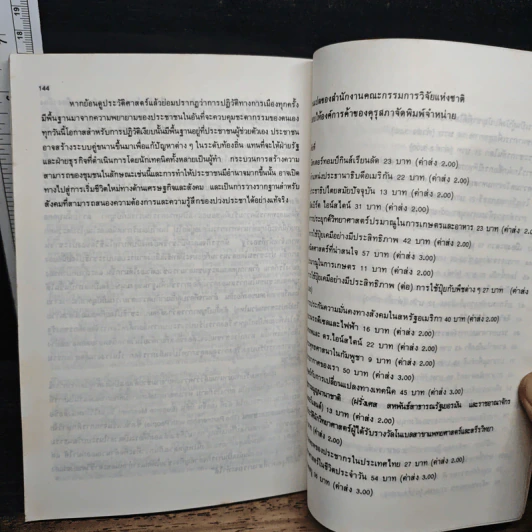 144
หากย้อนดูประวัติศาสตร์แล้วย่อมปรากฏว่าการปฏิวัติทางการเมืองทุกครั้ง
มีพื้นฐานมาจากความพยายามของประชาชนในอันที่จะควบคุมชะตากรรมของตนเอง
ทุกวันนี้โอกาสสำหรับการปฏิวัติเงียบนั้นมีพื้นฐานอยู่ที่ประชาชนผู้ช่วยตัวเอง ประชาชน
อาจสร้างระบบคู่ขนานขึ้นมาเพื่อแก้ปัญหาต่าง ๆ ในระดับท้องถิ่น แทนที่จะให้ฝ่ายรัฐ
และฝ่ายธุรกิจที่ดำเนินการโดยนักเทคนิคทั้งหลายเป็นผู้ทำ กระบวนการสร้างความ
สามารถของชุมชนในลักษณะเช่นนี้และการทำให้ประชาชนมีอำนาจมากขึ้นนั้น อาจเปิด
ทางไปสู่การเริ่มชีวิตใหม่ทางด้านเศรษฐกิจและสังคม และเป็นการวางรากฐานสำหรับ
สังคมที่สามารถสนองความต้องการและความรู้สึกของปวงประชาได้อย่างแท้จริง
ของสำนักงานคณะกรรมการวิจัยแห่งชาติ
ให้องค์การค้าของคุรุสภาจัดพิมพ์จำหน่าย
23 บาท (ค่าส่ง 2.00)
ประธานาธิบดีอเมริกัน 22 บาท (ค่าส่ง 2.00)
โดยสมัยปัจจุบัน 13 บาท (ค่าส่ง 2.00)
ไอน์สไตน์ 31 บาท (ค่าส่ง 2.00)
ประยุกต์วิทยาศาสตร์ปรมาณูในการเกษตรและอาหาร 23 บาท (ค่าส่ง 2.00)
ใช้ปุ๋ยเคมีอย่างมีประสิทธิภาพ 42 บาท (ค่าส่ง 2.00)
ศาสตร์ที่น่าสนใจ 57 บาท (ค่าส่ง 3.00)
ในการเกษตร 11 บาท (ค่าส่ง 2.00)
ใช้ปุ๋ยเคมีอย่างมีประสิทธิภาพ (ต่อ) การใช้ปุ๋ยกับพืชต่าง ๆ 27 บาท (ค่าส่ง
ประกันความมั่นคงทางสังคมในสหรัฐอเมริกา 40 บาท (ค่าส่ง 2.00)
และไฟฟ้า 16 บาท (ค่าส่ง 2.00)
และ ดร.ไอน์สไตน์ 22 บาท (ค่าส่ง 2.00)
ศาสนาในกัมพูชา 9 บาท (ค่าส่ง 2.00)
ของเรา 50 บาท (ค่าส่ง 3.00)
กับการเปลี่ยนแปลงทางเทคนิค 45 บาท (ค่าส่ง 3.00)
(ฝรั่งเศส สหพันธ์สาธารณรัฐเยอรมัน และราชอาณาจักร
13 บาท (ค่าส่ง 2.00)
วิทยาศาสตร์ผู้ได้รับรางวัลโนเบลสาขาแพทยศาสตร์และสรีรวิทยา
(ค่าส่ง 2.00)
ของประชากรในประเทศไทย 27 บาท (ค่าส่ง 2.00)
ในชีวิตประจำวัน 54 บาท (ค่าส่ง 3.00)
บาท (ค่าส่ง 3.00)